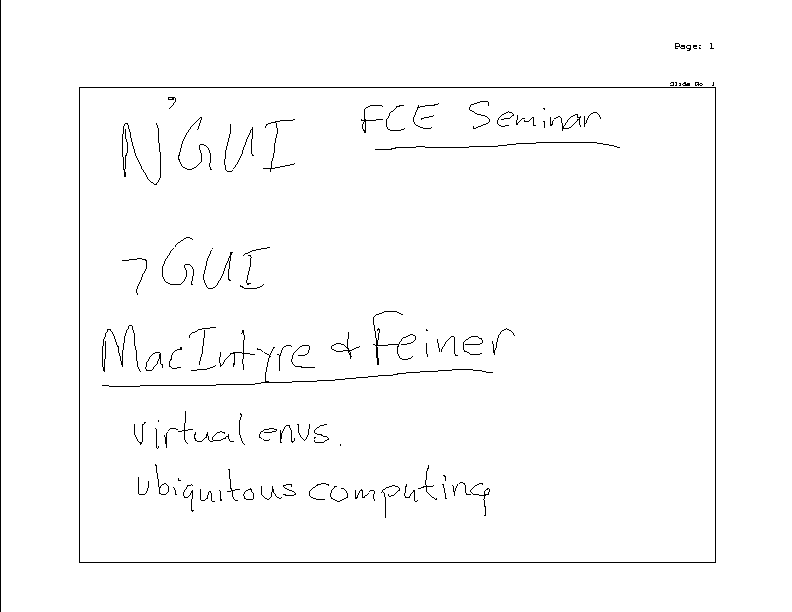 Page: 1
Slide No 1
N'GUI
FCE Seminar
¬GUI
MacIntyre & Feiner
virtual envs.
ubiquitous computing